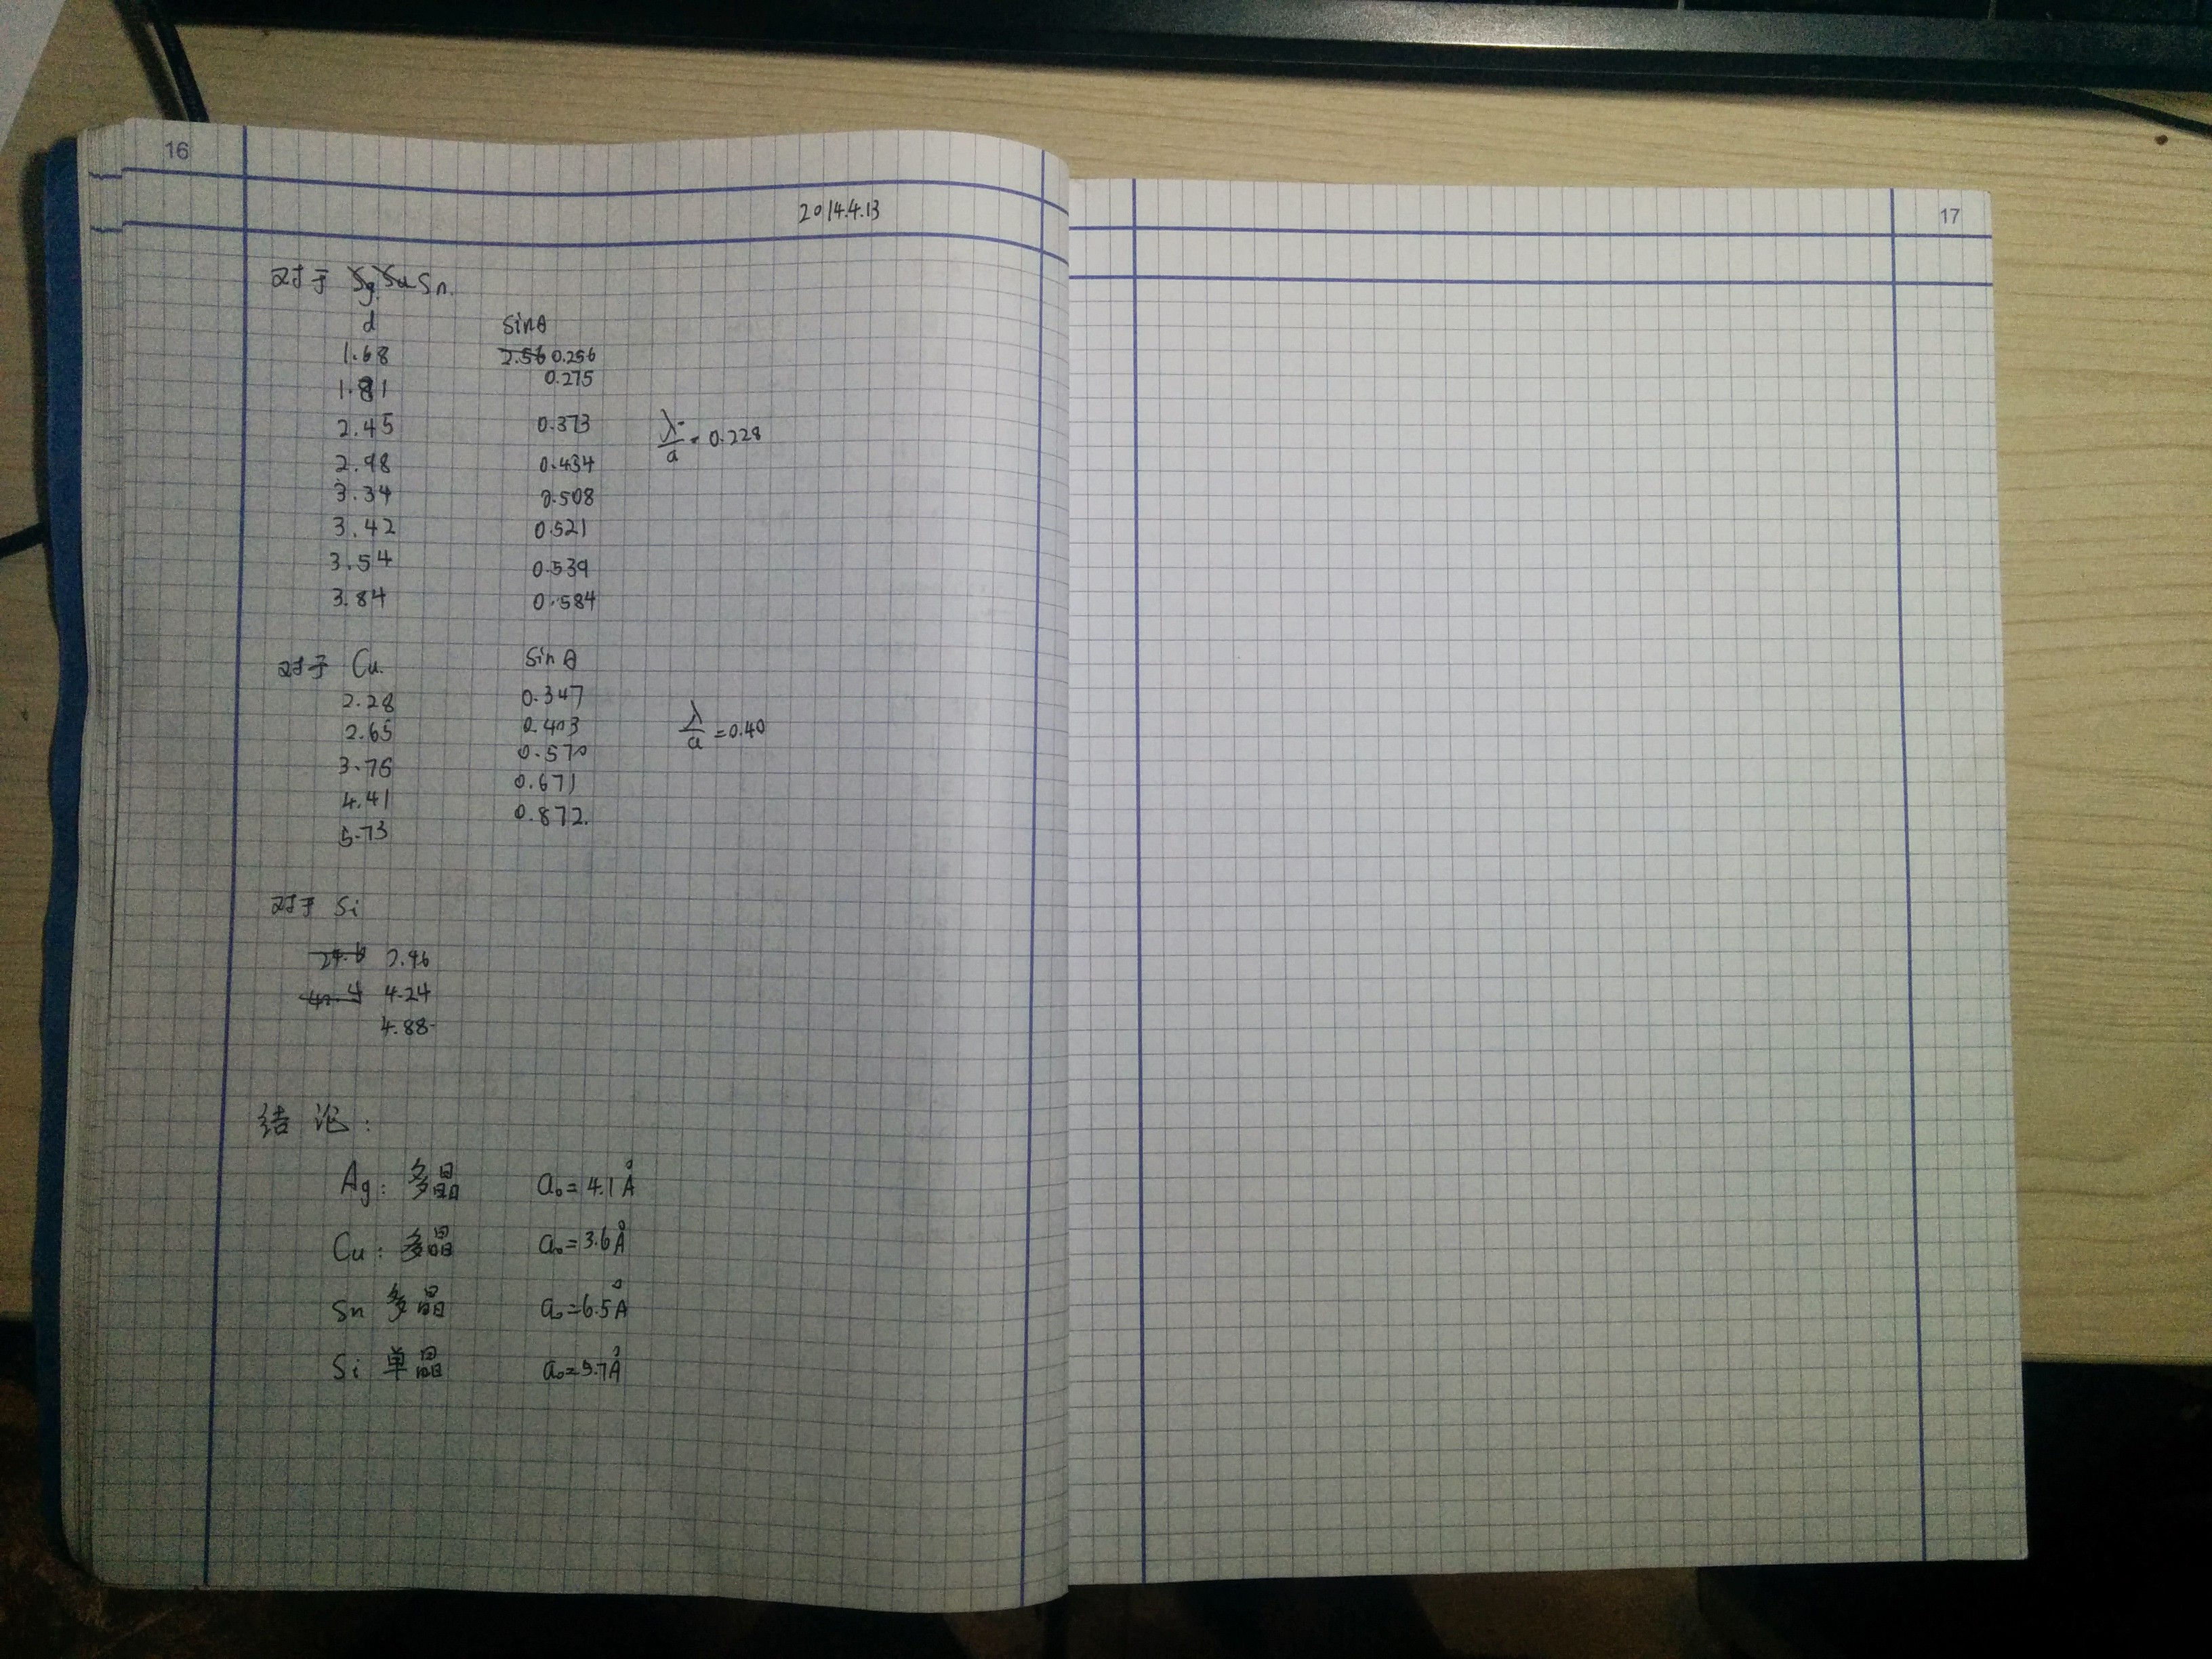 16
2014.4.13
对于 Sn.
d sinθ
1.68 2.56 0.256
1.81 0.275
2.45 0.373
λ/a = 0.228
2.98 0.434
3.34 0.508
3.42 0.521
3.54 0.539
3.84 0.584
对于 Cu. sinθ
2.28 0.347
2.65 0.403
λ/a = 0.40
3.76 0.570
4.41 0.671
5.73 0.872.
对于 Si
2.96
4.24
4.88
结论:
Ag: 多晶 a₀=4.1Å
Cu: 多晶 a₀=3.6Å
Sn 多晶 a₀=6.5Å
Si 单晶 a₀=5.7Å
17